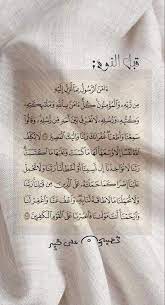 قبل النوم:
ءَامَنَ ٱلرَّسُولُ بِمَآ أُنزِلَ إِلَيْهِ
مِن رَّبِّهِۦ وَٱلْمُؤْمِنُونَ كُلٌّ ءَامَنَ بِٱللَّهِ وَمَلَٰٓئِكَتِهِۦ
وَكُتُبِهِۦ وَرُسُلِهِۦ لَا نُفَرِّقُ بَيْنَ أَحَدٍ مِّن رُّسُلِهِۦ وَقَالُوا۟
سَمِعْنَا وَأَطَعْنَا غُفْرَانَكَ رَبَّنَا وَإِلَيْكَ ٱلْمَصِيرُ لَا يُكَلِّفُ
ٱللَّهُ نَفْسًا إِلَّا وُسْعَهَا لَهَا مَا كَسَبَتْ وَعَلَيْهَا مَا ٱكْتَسَبَتْ
رَبَّنَا لَا تُؤَاخِذْنَآ إِن نَّسِينَآ أَوْ أَخْطَأْنَا رَبَّنَا وَلَا تَحْمِلْ
عَلَيْنَآ إِصْرًا كَمَا حَمَلْتَهُۥ عَلَى ٱلَّذِينَ مِن قَبْلِنَا رَبَّنَا وَلَا تُحَمِّلْنَا
مَا لَا طَاقَةَ لَنَا بِهِۦ وَٱعْفُ عَنَّا وَٱغْفِرْ لَنَا
وَٱرْحَمْنَآ أَنتَ مَوْلَىٰنَا فَٱنصُرْنَا عَلَى ٱلْقَوْمِ ٱلْكَٰفِرِينَ
على خير